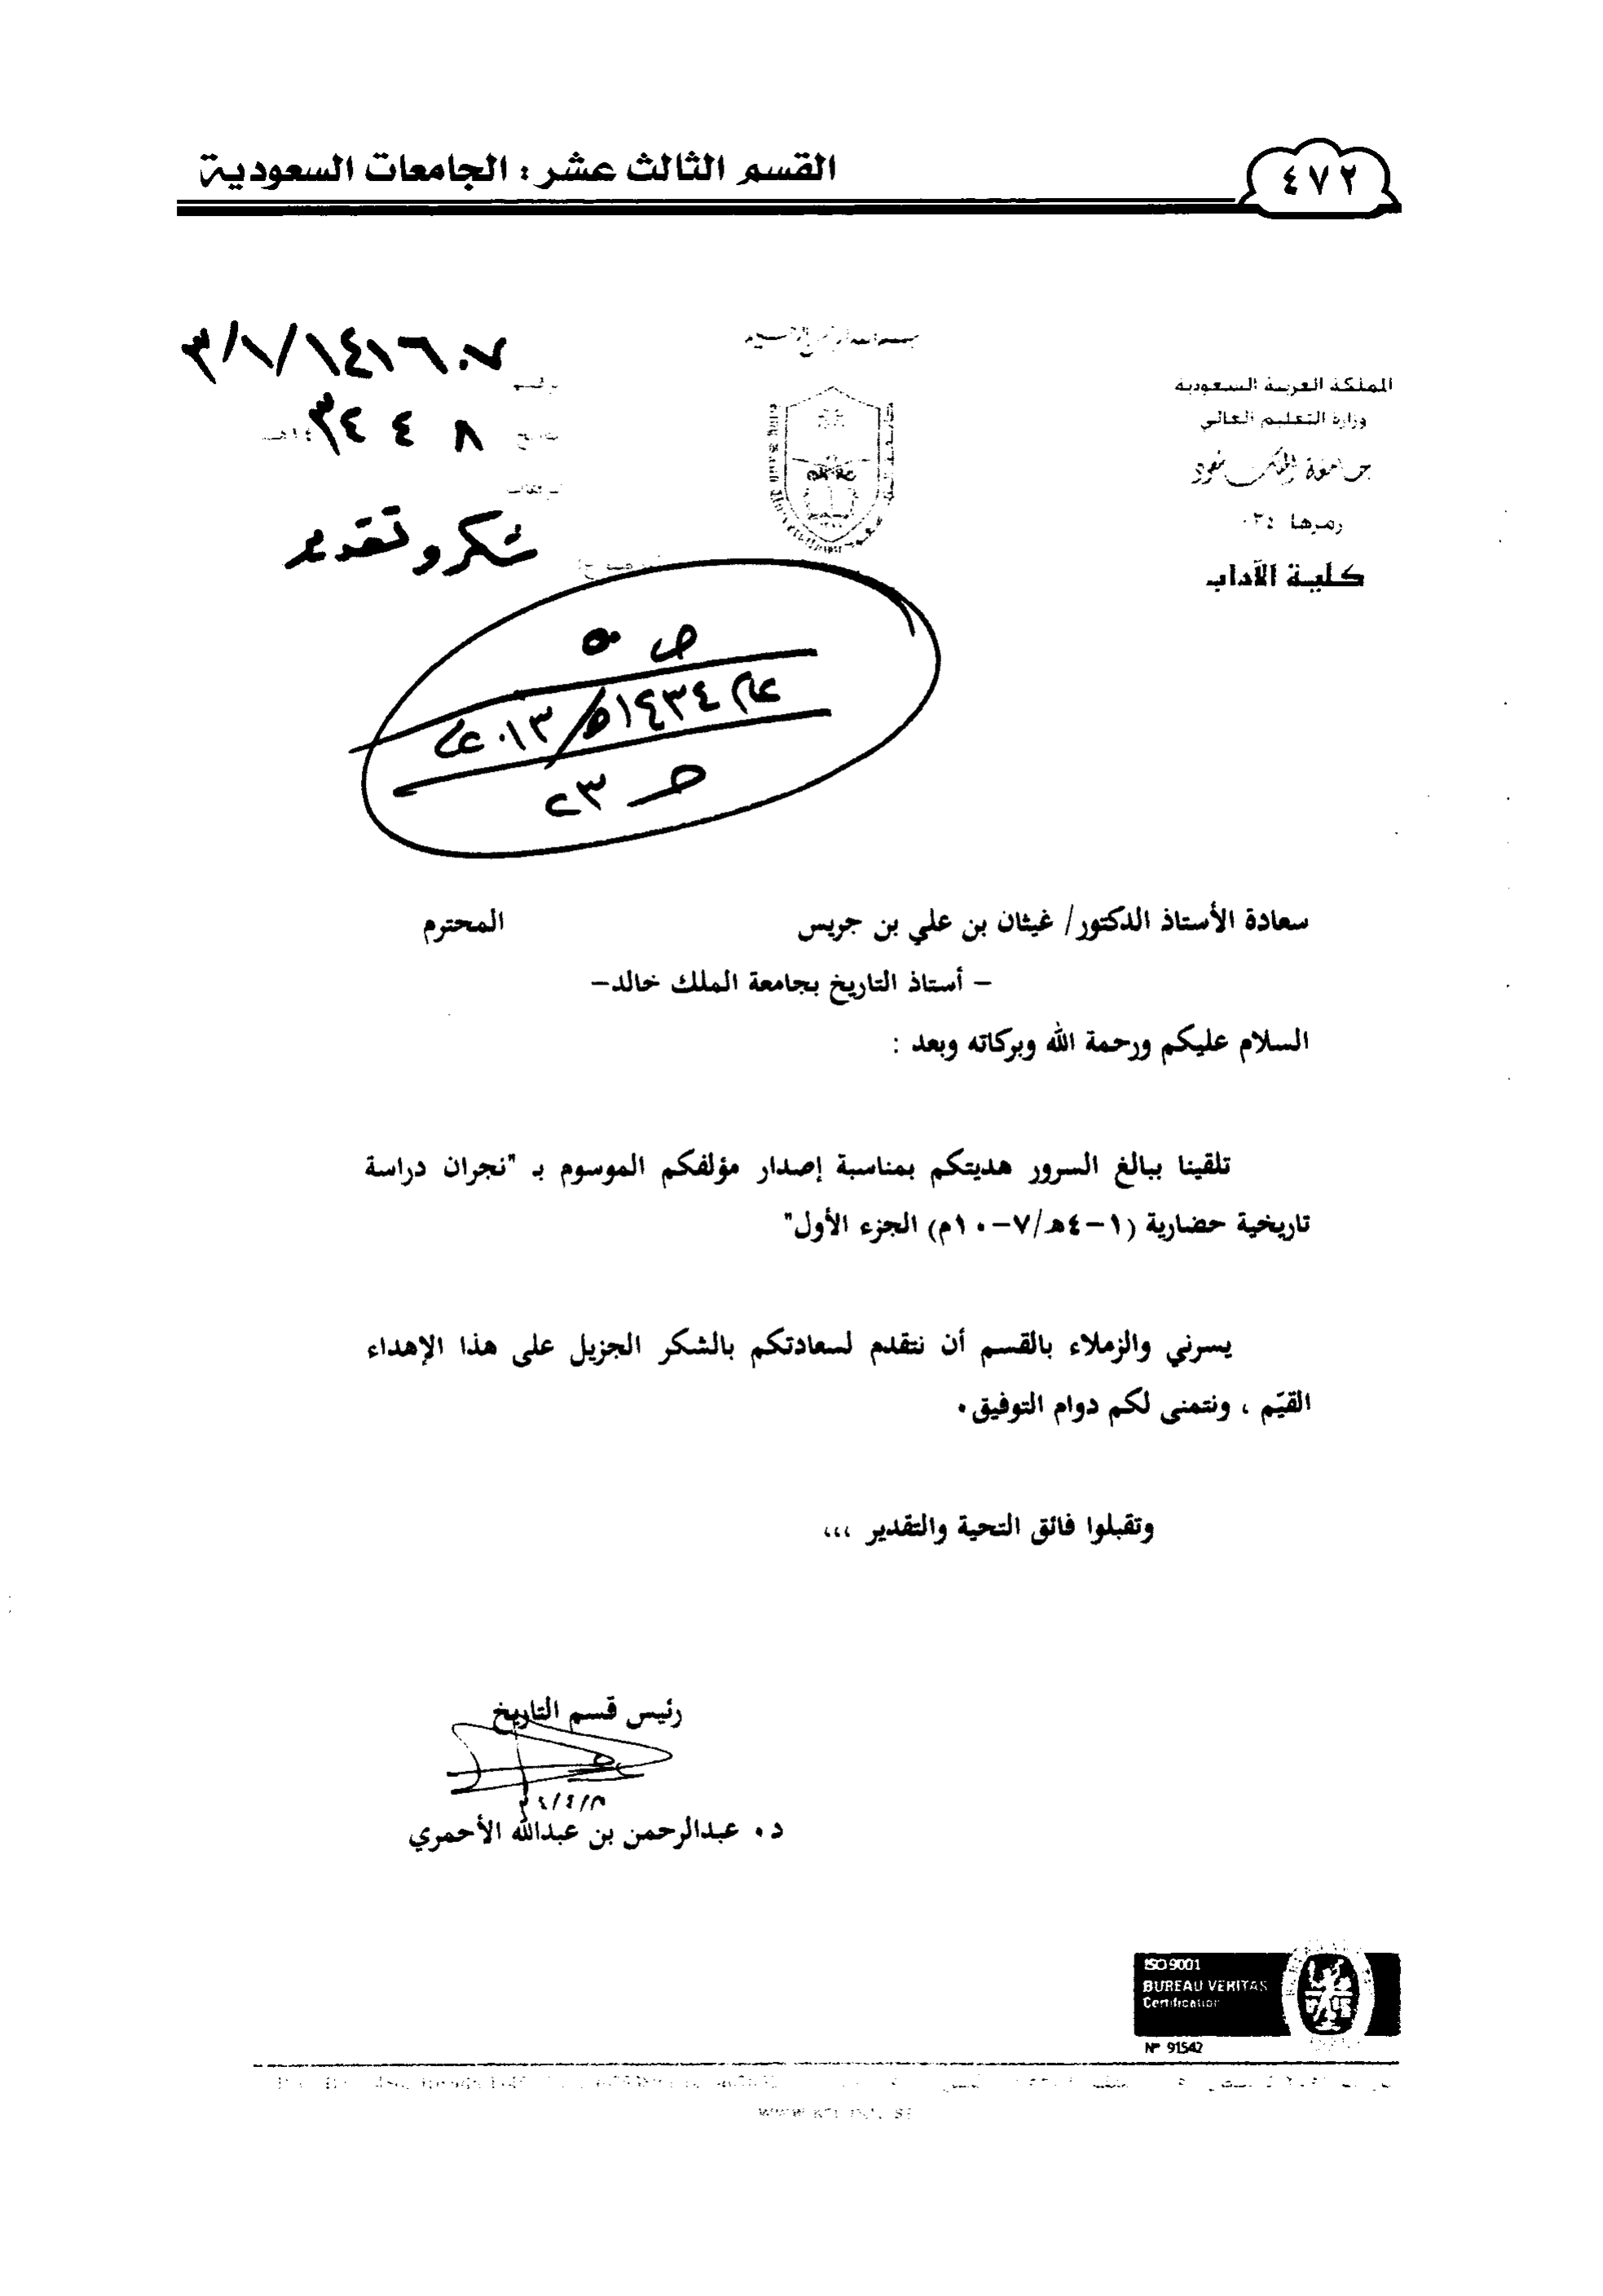 ٤٧٢
القسم الثالث عشر : الجامعات السعودية
المملكة العربية السعودية
وزارة التعليم العالي
جامعة الملك سعود
رمزها ٠٣٤
كلية الآداب
شكر وتقدير
ص ٥٠
عام ١٤٣٤هـ/ ٢٠١٣م
حـ ٢٣
سعادة الأستاذ الدكتور/ غيثان بن علي بن جريس المحترم
– أستاذ التاريخ بجامعة الملك خالد–
السلام عليكم ورحمة الله وبركاته وبعد :
تلقينا ببالغ السرور هديتكم بمناسبة إصدار مؤلفكم الموسوم بـ "نجران دراسة
تاريخية حضارية (١–٤هـ/٧–١٠م) الجزء الأول"
يسرني والزملاء بالقسم أن نتقدم لسعادتكم بالشكر الجزيل على هذا الإهداء
القيّم ، ونتمنى لكم دوام التوفيق٠
وتقبلوا فائق التحية والتقدير ،،،
رئيس قسم التاريخ
د٠ عبدالرحمن بن عبدالله الأحمري
ISO 9001
BUREAU VERITAS
Certification
N° 91542